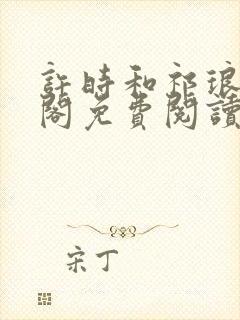 許時和祁琅
閣免費閱讀
宋丁